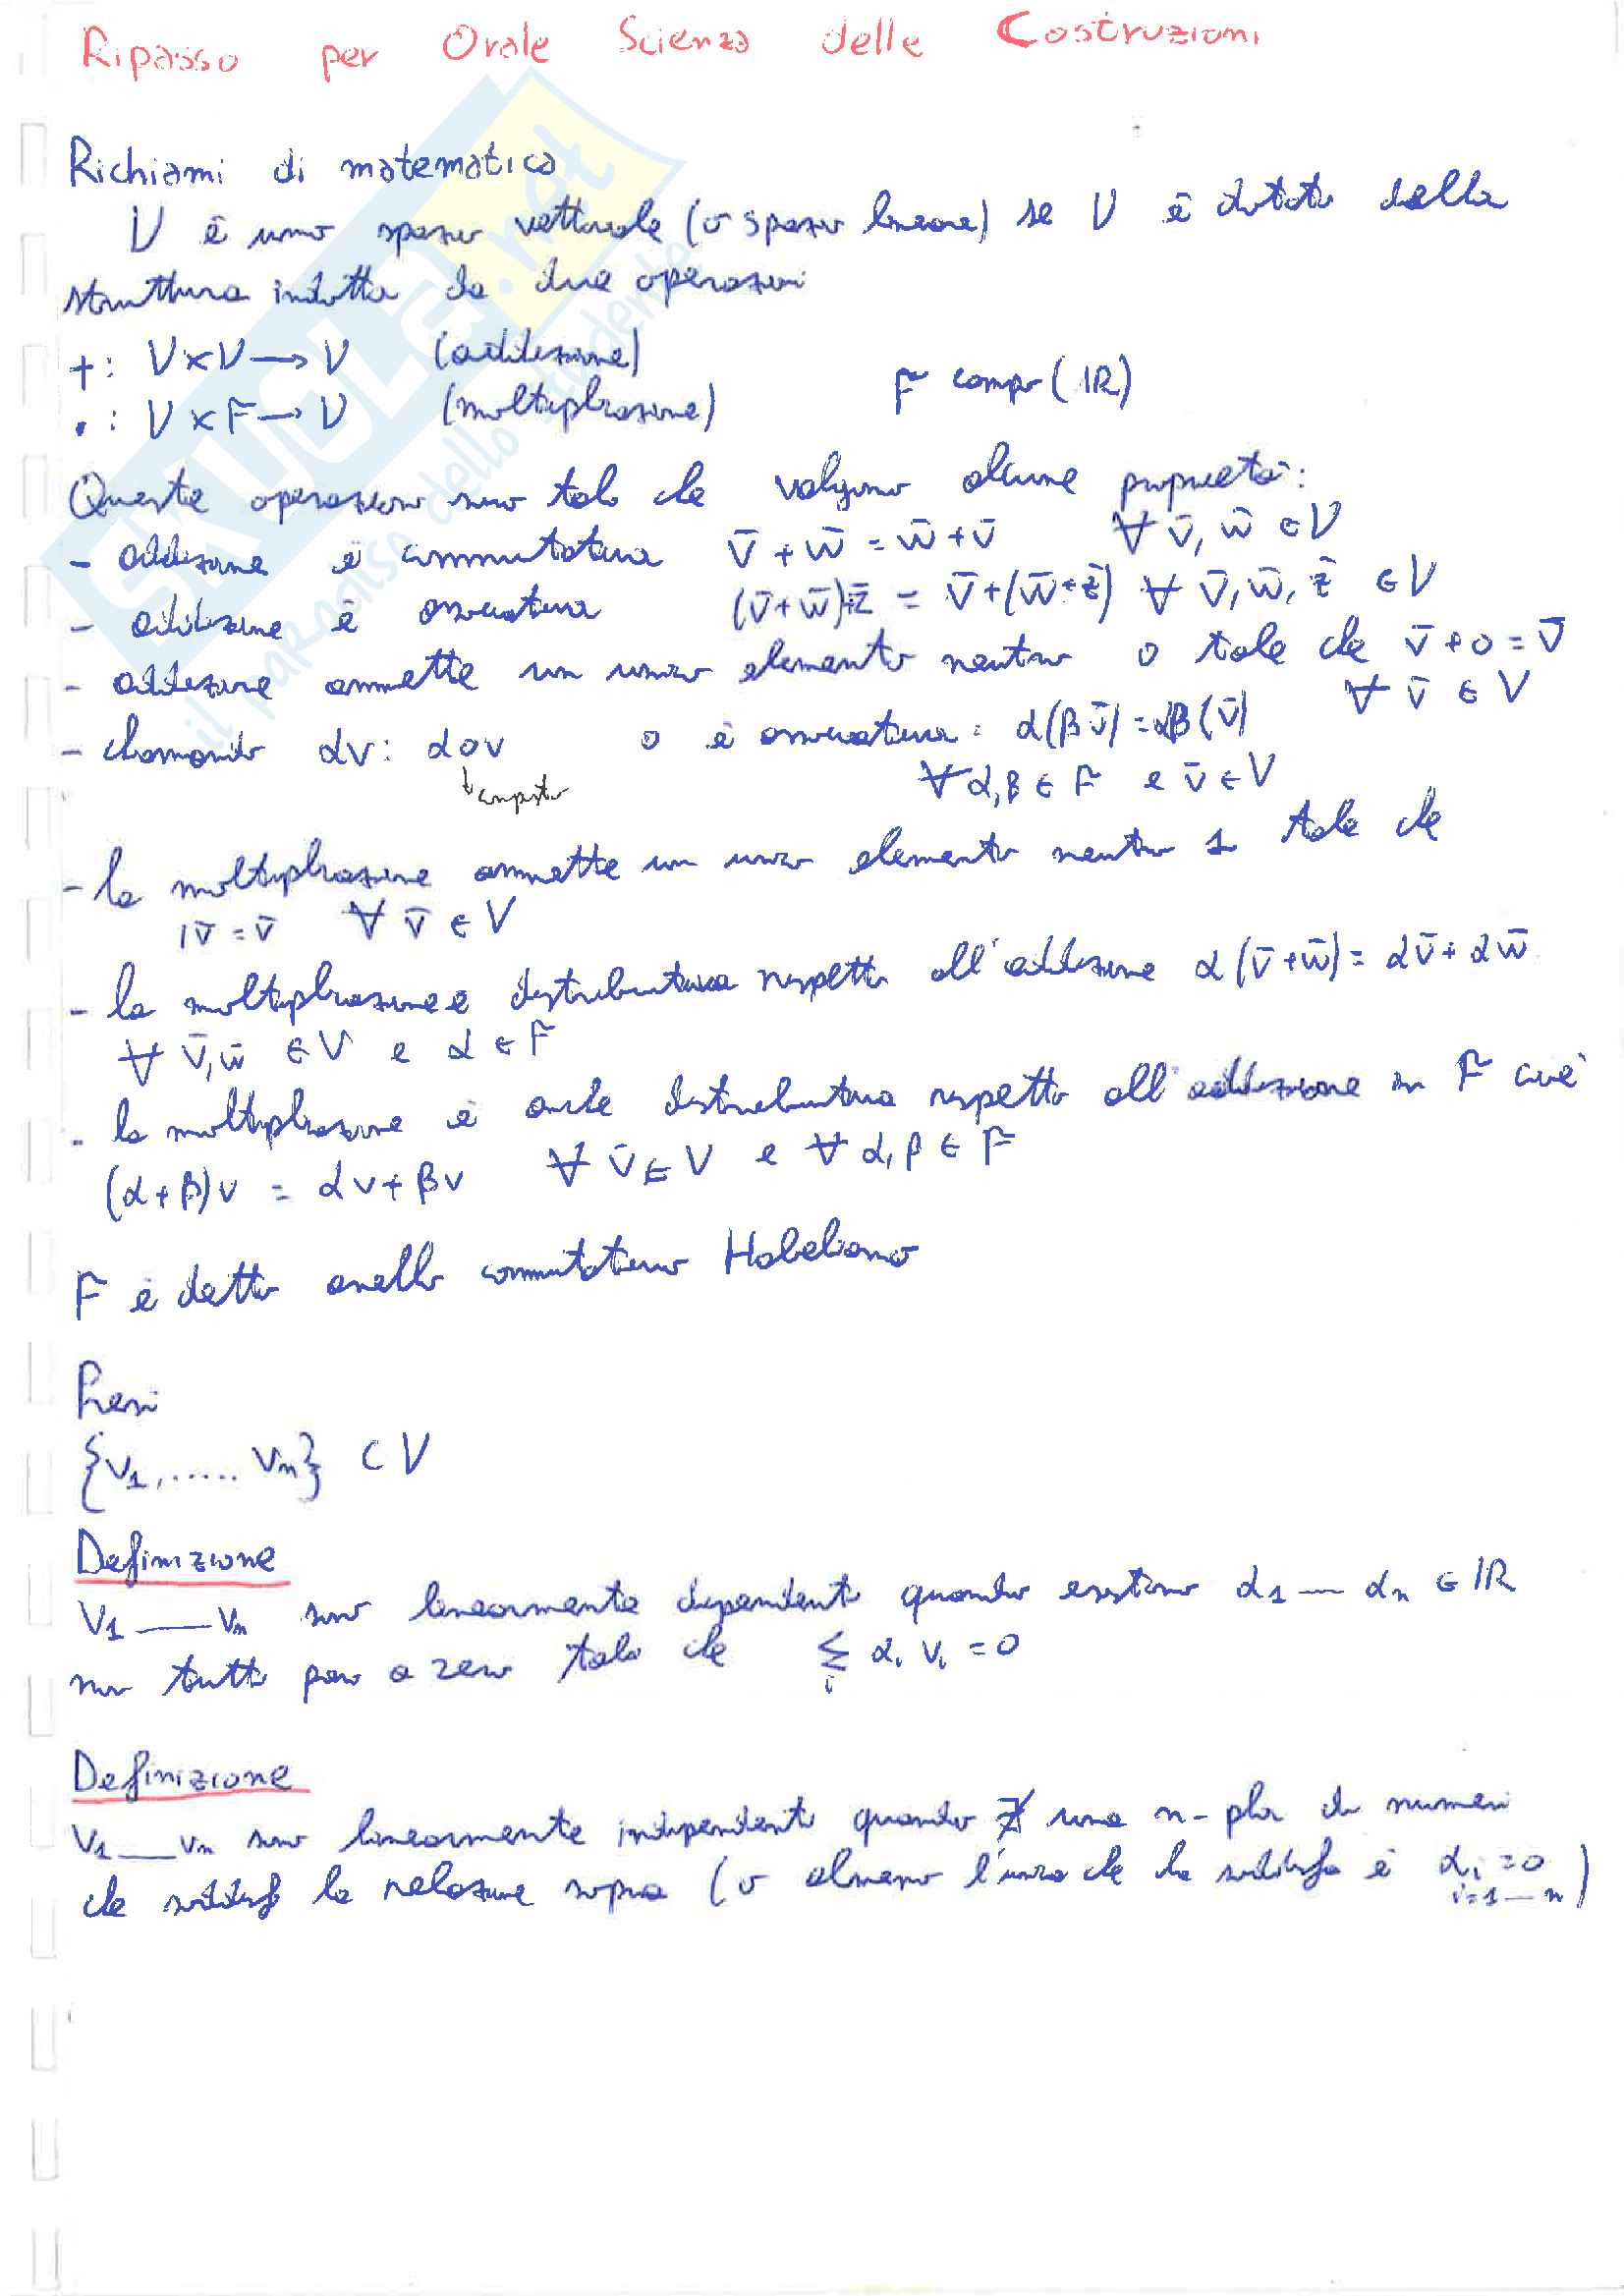 Ripasso per Orale Scienza delle Costruzioni
Richiami di matematica
V è uno spazio vettoriale (o spazio lineare) se V è dotato della
struttura indotta da due operazioni
+: V×V → V (addizione)
F campo (IR)
•: V×F → V (moltiplicazione)
Queste operazioni sono tali che valgono alcune proprietà:
- addizione è commutativa v̄ + w̄ = w̄ + v̄ ∀ v̄, w̄ ∈ V
- addizione è associativa (v̄ + w̄)+z̄ = v̄+(w̄+z̄) ∀ v̄, w̄, z̄ ∈ V
- addizione ammette un unico elemento neutro 0 tale che v̄ + 0 = v̄
∀ v̄ ∈ V
- chiamando αv: α∘v ∘ è associativa: α(βv̄) = αβ(v̄)
↓ composto ∀ α,β ∈ F e v̄ ∈ V
- la moltiplicazione ammette un unico elemento neutro 1 tale che
1v̄ = v̄ ∀ v̄ ∈ V
- la moltiplicazione è distributiva rispetto all'addizione α(v̄+w̄) = αv̄ + αw̄
∀ v̄, w̄ ∈ V e α ∈ F
- la moltiplicazione è anche distributiva rispetto all'addizione in F cioè
(α+β)v = αv + βv ∀ v̄ ∈ V e ∀ α, β ∈ F
F è detto anello commutativo Habeliano
Presi
{v1, ..... vn} ⊂ V
Definizione
V1 — Vn sono linearmente dipendenti quando esistono α1 — αn ∈ IR
non tutti pari a zero tali che Σi αi vi = 0
Definizione
V1 — Vn sono linearmente indipendenti quando ∄ una n-pla di numeri
che soddisfi la relazione sopra (o almeno l'unica che la soddisfa è αi = 0
i=1 — n)
SKUOLA.net
il paradiso dello studente